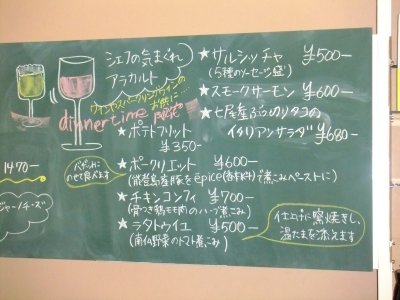 シェフの気まぐれ
アラカルト
ワインやスパークリングワインの
お供に…
dinnertime 限定
★ポテトフリット
¥350-
バゲットに
のせて食べます
★ポークリエット ¥600-
(能登島産豚をépice(香辛料)で煮こみペーストに)
★チキンコンフィ ¥700-
(骨つき鶏モモ肉のハーブ煮こみ)
★ラタトゥイユ ¥500-
(南仏野菜のトマト煮こみ)
★サルシッチャ ¥500-
(5種のソーセージ盛)
★スモークサーモン ¥600-
★七尾産ぶつ切りタコの
イタリアンサラダ ¥680-
仕上げに窯焼きし、
温たまを添えます
1470-
ジャーノチーズ